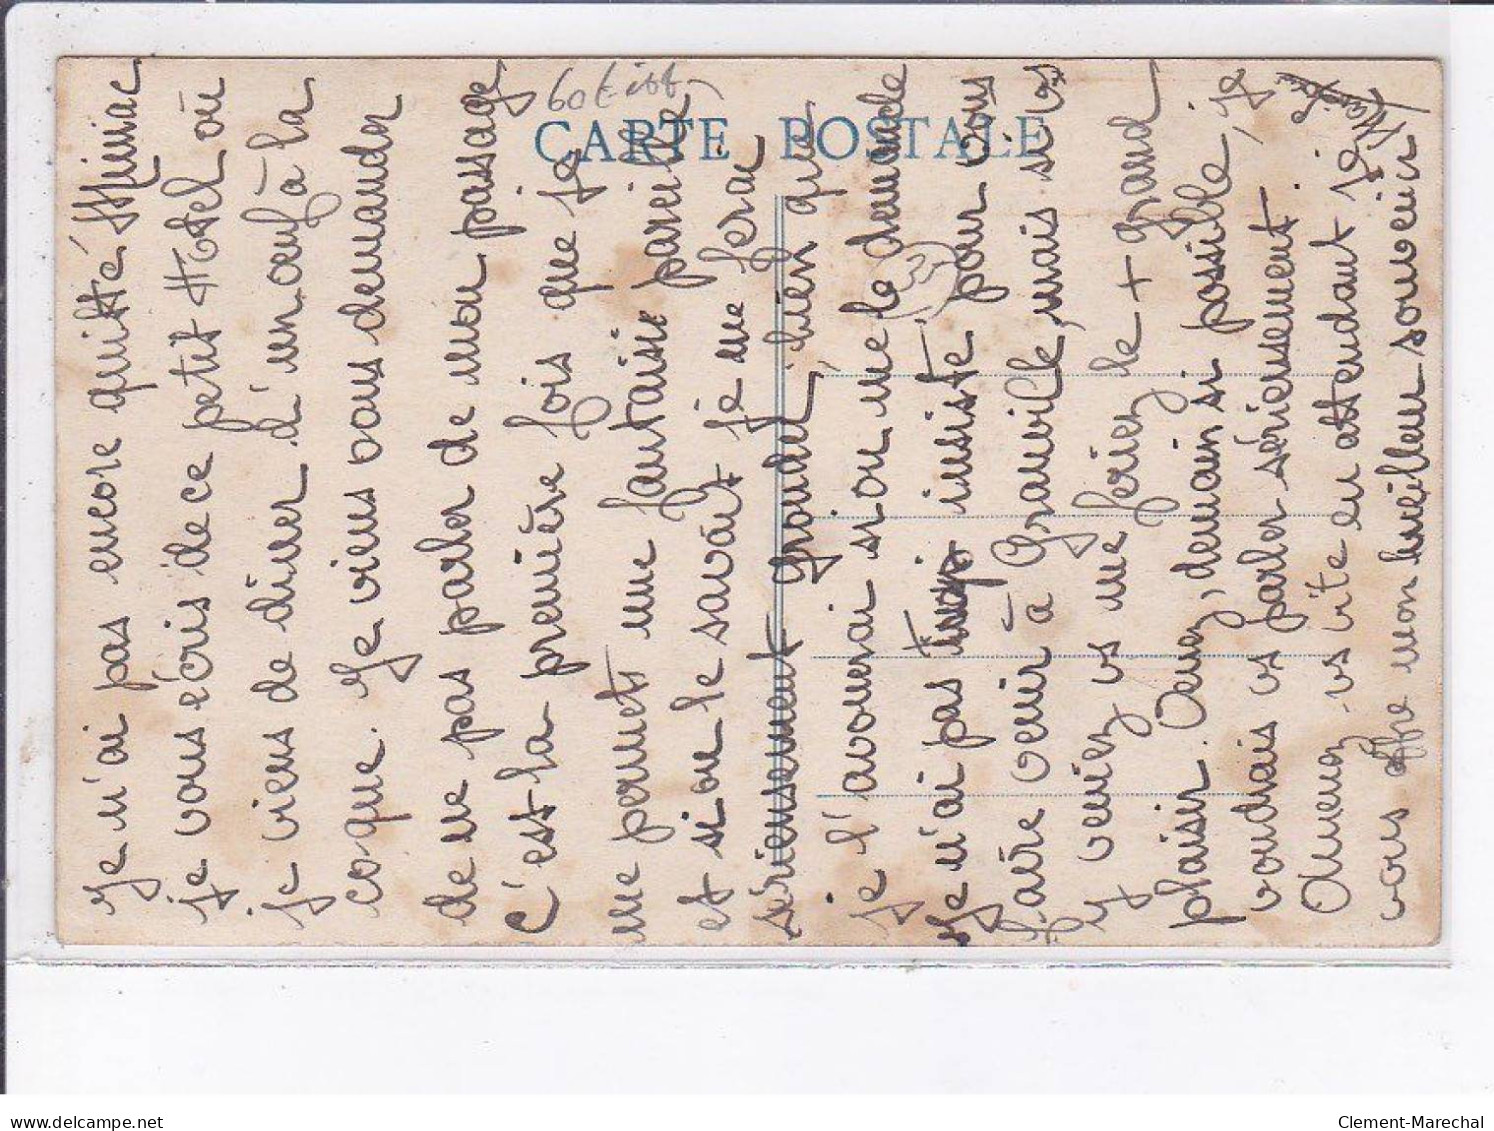 Je n'ai pas encore quitté Miniac
je vous écris de ce petit Hôtel où
je viens de dîner d'un œuf à la
coque. Je viens vous demander
de ne pas parler de mon passage
C'est la première fois que je
me permets une fantaisie pareille,
et si on le savait je me ferai
sérieusement gronder, bien que
je l'avouerai si on me le demande
Je n'ai pas trop insisté pour vous
faire venir à Granville, mais si vs
y veniez vs me feriez le + grand
plaisir. Venez, demain si possible, je
voudrais vs parler sérieusement.
Amenez vs vite en attendant je
vous offre mon meilleur souvenir
CARTE POSTALE
35
delcampe.net
Clement-Marechal